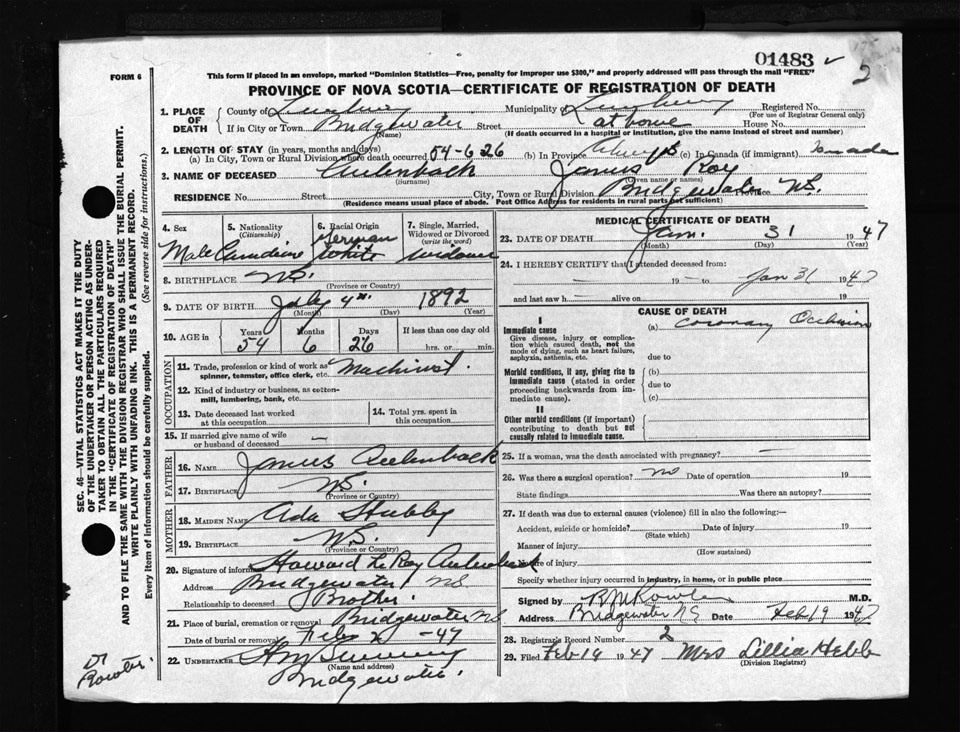 01483
2
FORM 6
This form if placed in an envelope, marked "Dominion Statistics—Free, penalty for improper use $300," and properly addressed will pass through the mail "FREE"
PROVINCE OF NOVA SCOTIA—CERTIFICATE OF REGISTRATION OF DEATH
1. PLACE OF DEATH County of Municipality of Registered No. (For use of Registrar General only)
If in City or Town Bridgewater (Name) Street at home House No.
(If death occurred in a hospital or institution, give the name instead of street and number)
2. LENGTH OF STAY (in years, months and days)
(a) In City, Town or Rural Division where death occurred 54-6 26 (b) In Province Always (c) In Canada (if immigrant) Canada
3. NAME OF DECEASED (Surname) James Roy (Given name or names)
RESIDENCE No. Street City, Town or Rural Division Bridgewater Province N.S.
(Residence means usual place of abode. Post Office Address for residents in rural parts not sufficient)
4. Sex Male
5. Nationality (Citizenship) Canadian
6. Racial Origin German White
7. Single, Married, Widowed or Divorced (write the word) widower
8. BIRTHPLACE N.S.
9. DATE OF BIRTH July (Month) 4 (Day) 1892 (Year)
10. AGE in Years 54 Months 6 Days 26 If less than one day old hrs. or min.
OCCUPATION
11. Trade, profession or kind of work as spinner, teamster, office clerk, etc. Machinist.
12. Kind of industry or business, as cotton-mill, lumbering, bank, etc.
13. Date deceased last worked at this occupation
14. Total yrs. spent in this occupation
15. If married give name of wife or husband of deceased —
FATHER
16. NAME James
17. Birthplace N.S. (Province or Country)
MOTHER
18. MAIDEN NAME Ada
19. Birthplace N.S. (Province or Country)
20. Signature of informant Howard LeRoy
Address Bridgewater NS
Relationship to deceased Brother.
21. Place of burial, cremation or removal Bridgewater NS
Date of burial or removal Feb -47
22. UNDERTAKER (Name and address)
Bridgewater.
MEDICAL CERTIFICATE OF DEATH
23. DATE OF DEATH Jan. (Month) 31 (Day) 1947 (Year)
24. I HEREBY CERTIFY that I attended deceased from:
— 19 — to Jan 31 1947
and last saw h — alive on 19
CAUSE OF DEATH
I
Immediate cause
Give disease, injury or complication which caused death, not the mode of dying, such as heart failure, asphyxia, asthenia, etc.
(a) Coronary Occlusion
due to
Morbid conditions, if any, giving rise to immediate cause (stated in order proceeding backwards from immediate cause).
(b)
due to
(c)
II
Other morbid conditions (if important) contributing to death but not causally related to immediate cause.
25. If a woman, was the death associated with pregnancy? —
26. Was there a surgical operation? no Date of operation 19
State findings Was there an autopsy?
27. If death was due to external causes (violence) fill in also the following:—
Accident, suicide or homicide? (State which) Date of injury 19
Manner of injury (How sustained)
Nature of injury
Specify whether injury occurred in industry, in home, or in public place
Signed by M.D.
Address Bridgewater N.S. Date Feb 19 1947
28. Registrar's Record Number 2
29. Filed Feb 19 1947 Mrs Lillia Hebb (Division Registrar)
SEC. 46—VITAL STATISTICS ACT MAKES IT THE DUTY
OF THE UNDERTAKER OR PERSON ACTING AS UNDER-
TAKER TO OBTAIN ALL THE PARTICULARS REQUIRED
IN THE "CERTIFICATE OF REGISTRATION OF DEATH"
AND TO FILE THE SAME WITH THE DIVISION REGISTRAR WHO SHALL ISSUE THE BURIAL PERMIT.
WRITE PLAINLY WITH UNFADING INK. THIS IS A PERMANENT RECORD.
Every item of information should be carefully supplied. (See reverse side for instructions.)
Dr